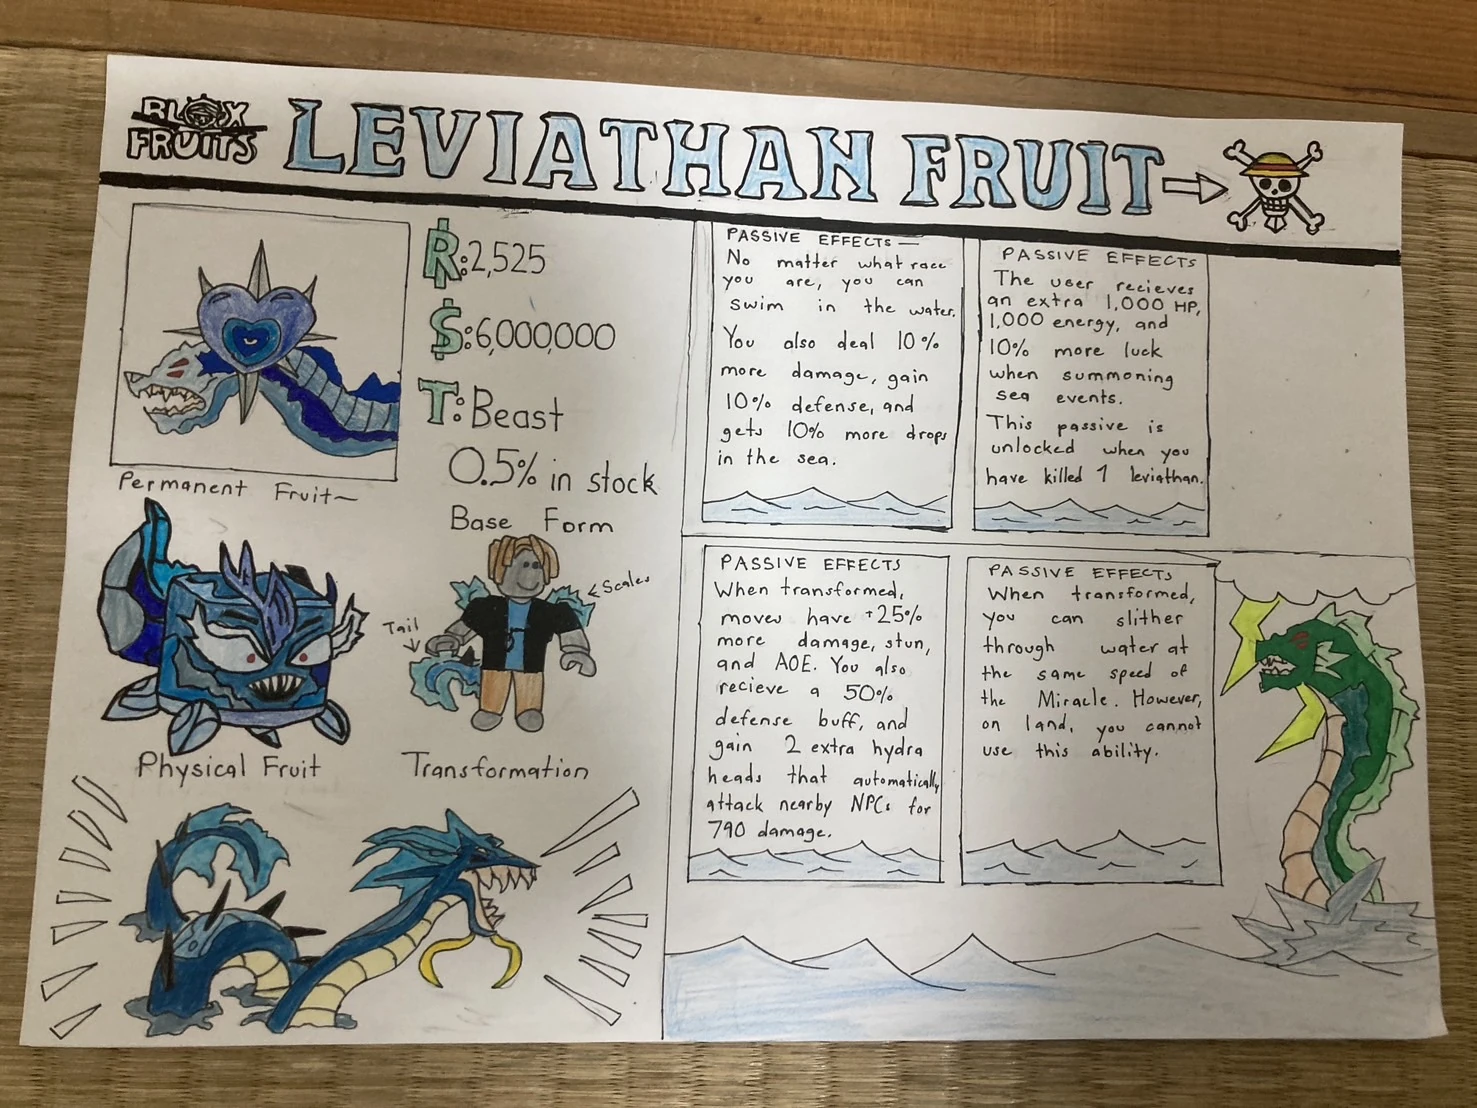 BLOX
FRUITS
LEVIATHAN FRUIT
R:2,525
$:6,000,000
T:Beast
0.5% in stock
Permanent Fruit
Base Form
Scales
Tail
Physical Fruit
Transformation
PASSIVE EFFECTS —
No matter what race
you are, you can
swim in the water.
You also deal 10%
more damage, gain
10% defense, and
gets 10% more drops
in the sea.
PASSIVE EFFECTS
The user recieves
an extra 1,000 HP,
1,000 energy, and
10% more luck
when summoning
sea events.
This passive is
unlocked when you
have killed 1 leviathan.
PASSIVE EFFECTS
When transformed,
moves have +25%
more damage, stun,
and AOE. You also
recieve a 50%
defense buff, and
gain 2 extra hydra
heads that automatically
attack nearby NPCs for
790 damage.
PASSIVE EFFECTS
When transformed,
you can slither
through water at
the same speed of
the Miracle. However,
on land, you cannot
use this ability.